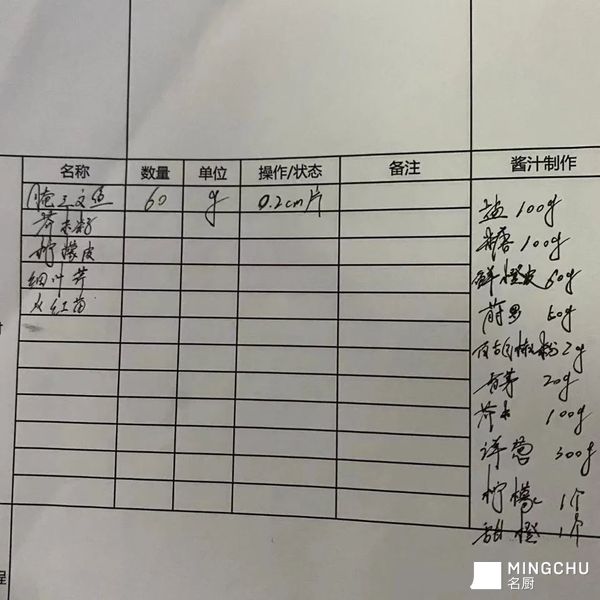 名称 数量 单位 操作/状态 备注 酱汁制作
腌三文鱼 60 g 0.2cm片
芥末籽
柠檬皮
细叶芹
水红苗
盐 100g
糖 100g
鲜橙皮 60g
莳萝 60g
白胡椒粉 2g
香茅 20g
芥末 100g
洋葱 300g
柠檬 1个
甜橙 1个
程
MINGCHU
名厨